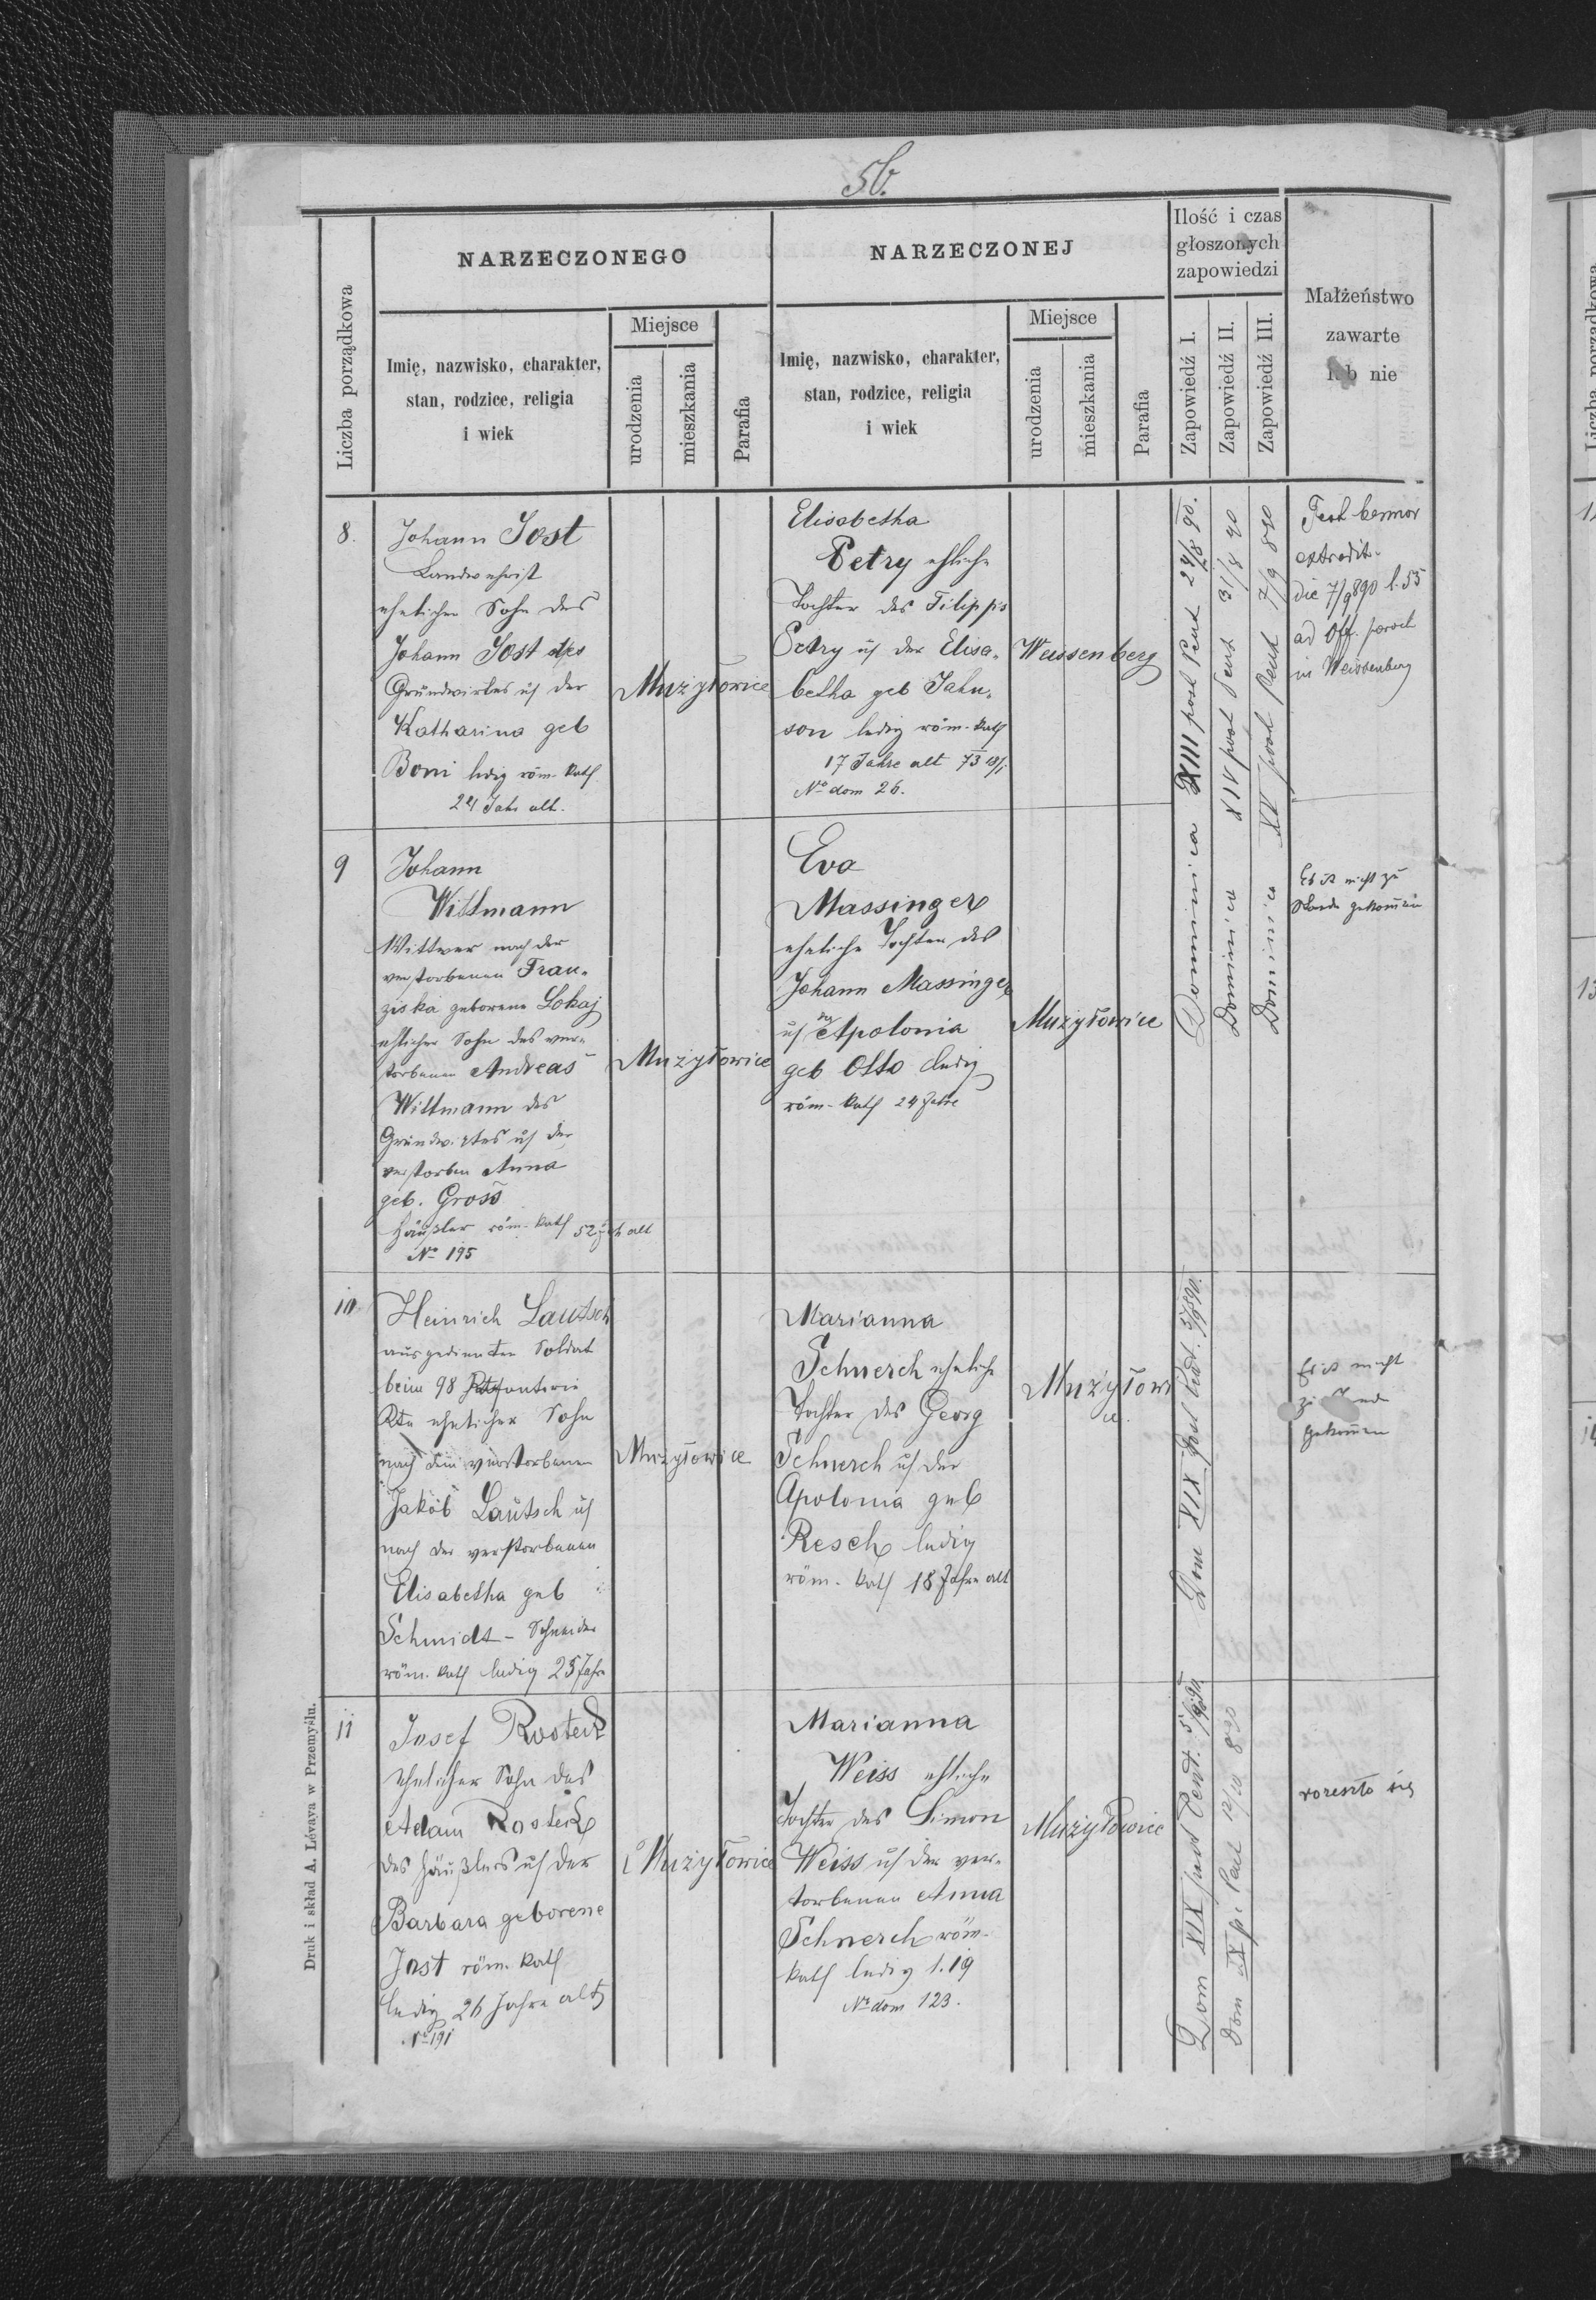 56.
Liczba porządkowa
NARZECZONEGO
Imię, nazwisko, charakter,
stan, rodzice, religia
i wiek
Miejsce
urodzenia
mieszkania
Parafia
NARZECZONEJ
Imię, nazwisko, charakter,
stan, rodzice, religia
i wiek
Miejsce
urodzenia
mieszkania
Parafia
Ilość i czas
głoszonych
zapowiedzi
Zapowiedź I.
Zapowiedź II.
Zapowiedź III.
Małżeństwo
zawarte
lub nie
8.
Johann Jost
ehelicher Sohn des
Johann Jost des
Grundwirtes u der
Katharina geb
Boni ledig röm. kath
24 Jahr alt.
Muzyłowice
Elisabetha
Petry ehliche
Tochter des Filipps
Petry u der Elisa-
betha geb Jahn-
son ledig röm-kath
17 Jahre alt 73 19/1
No dom 26.
Weissenberg
Dominica XIII post Pent 24/8 90.
Dominica XIV post Pent 31/8 90
Dominica XV post Pent 7/9 890
extradit.
die 7/9 890 l. 55
ad Off. paroch
in Weissenberg
9
Johann
Wittmann
Wittwer nach der
verstorbenen Fran-
ziska geborene Lokaj
ehlicher Sohn des ver-
torbenen Andreas
Wittmann des
Grundwirtes u der
verstorben Anna
geb. Gross
Häußler röm-kath 52 Jah alt
No 195
Muzyłowice
Eva
Massinger
eheliche Tochter des
Johann Massinger
u der Apolonia
geb Otto ledig
röm-kath 24 Jahre
Muzyłowice
Es ist nicht zu
Stande gekom̄en
10
Heinrich Lautsch
ausgedienter Soldat
beim 98 Infanterie
Rte ehelicher Sohn
nach dem verstorbenen
Jakob Lautsch u
nach der verstorbenen
Elisabetha geb
Schmidt - Schneider
röm. kath ledig 25 Jahre
Muzyłowice
Marianna
Schnerch eheliche
Tochter des Georg
Schnerch u der
Apolonia geb
Resch ledig
röm. kath 18 Jahre alt
Muzyłowi
ce.
Dom XIX post Pent.
Es ist nicht
zu
gekom̄en
11
Josef Rosterk
ehelicher Sohn des
Adam Rosterk
des Häußlers u der
Barbara geborene
Jost röm. kath
ledig 26 Jahre alt
No 191
Muzyłowice
Marianna
Weiss ehliche
Tochter des Simon
Weiss u der ver-
torbenen Anna
Schnerch röm-
kath ledig l. 19
No dom 123.
Muzyłowice
Dom XIX post Pent. 5/10 890
Dom XX p. Pent 12/10 890
rozeszło się
Druk i skład A. Lévaya w Przemyślu.
Liczba porządkowa
13